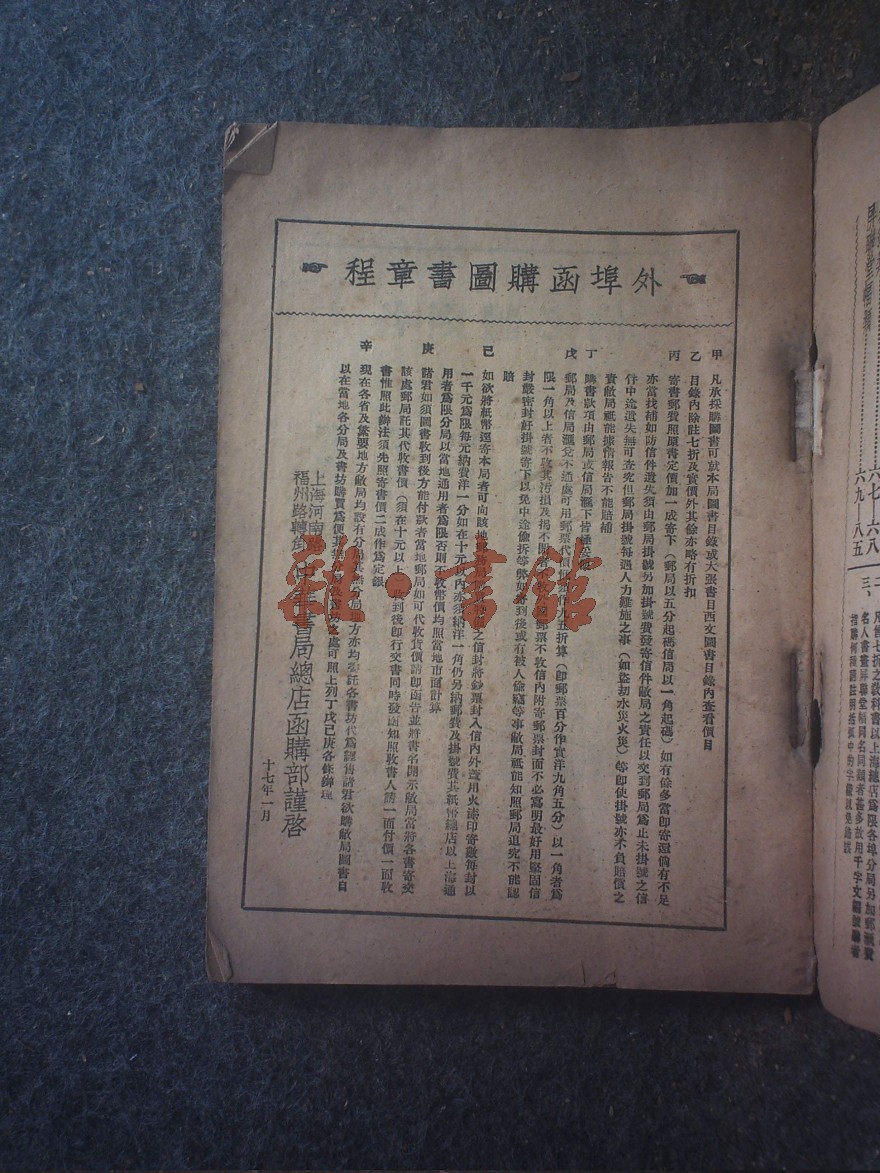 外埠函購圖書章程
甲 凡承採購圖書可就本局圖書目錄或大張書目西文圖書目錄內查看價目
乙 目錄內除註七折及實價外其餘亦略有折扣
丙 寄書郵費照原書定價加一成寄下（郵局以五分起碼信局以一角起碼）如有餘多當即寄還倘有不足
亦當找補如防信件遺失須由郵局掛號另加掛號費發寄信件敝局之責任以交到郵局為止未掛號之信
件中途遺失無可查究但郵局掛號每遇人力難施之事（如盜刧水災火災）等即使掛號亦不負賠償之
責敝局祇能據情報告不能賠補
丁 購書款項由郵局或信局滙下皆極妥
戊 郵局及信局滙兌不通處可用郵票代價 九五折算（即郵票百分作實洋九角五分）以一角者為
限一角以上者不收其污損及揭不開者不收 郵票不收信內附寄郵票封面不必寫明最好用堅固信
封嚴密封好掛號寄下以免中途偷拆等弊如寄到後或有被人偷竊等事敝局祇能知照郵局追究不能認
賠
己 如欲將紙幣逕寄本局者可向該地 之信封將鈔票封入信內外蓋用火漆印寄敝每封以
一千元為限每元納費洋一分如在十元以內亦須納洋一角仍另納郵費及掛號費其紙幣總店以上海通
用者為限分局以當地通用者為限否則不收幣價均照當地市面計算
庚 諸君如須圖書收到後方能付款者當地郵局如可代收貨價請即函告並將書名開示敝局當將各書寄交
該處郵局託其代收書價（須在十元以上）收到後即行交書同時發函知照收書人請一面付價一面收
書惟照此辦法須先照寄書價二成作為定銀
辛 現在各省及緊要地方敝局均設有分局其無分局地方亦均委託各書坊代為經售諸君欲購敝局圖書自
以在當地各分局及書坊購買為便其無分局及書坊之處可照上列丁戊己庚各條辦理
上海河南路
福州路轉角
中華書局總店函購部謹啓
十七年一月
雜·書館
六七—六八
六九—八五
二、
三、
凡售七折之教科書以上海總店為限各埠分局另加郵滙費
名人書畫屏聯堂幅同名同類者甚多故用千字文編號購者